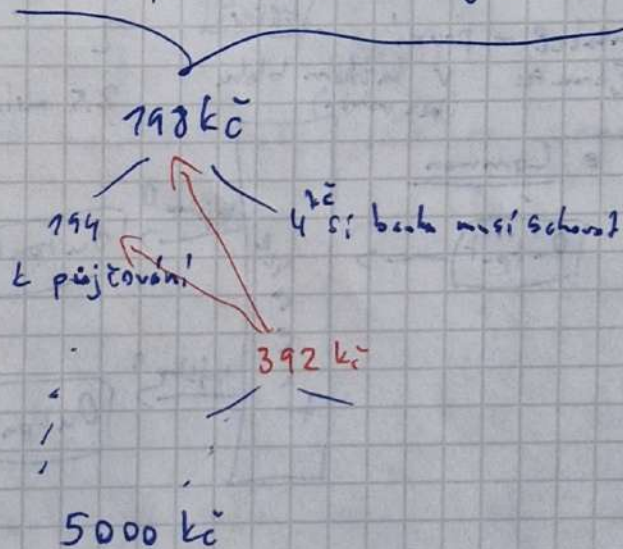 198 kč
194
4 kč si banka musí schovat
k půjčování
392 kč
5000 kč